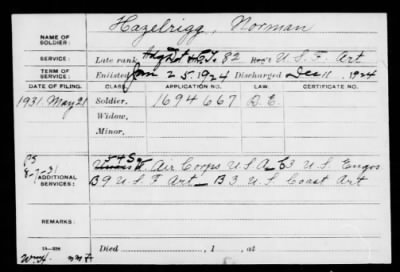 NAME OF SOLDIER: Hazelrigg, Norman
SERVICE: Late rank, Hdq Det & C.T. 82 Reg't U.S.F. Art
TERM OF SERVICE: Enlisted Jan 25, 1924 Discharged Dec 11, 1924
DATE OF FILING. CLASS. APPLICATION NO. LAW. CERTIFICATE NO.
1931 May 21 Soldier. 1694667
Widow.
Minor.
54 S
ADDITIONAL SERVICES: Air Corps U.S.A. U.S. Engrs
B 9 U.S.F. Art B 3 U.S. Coast Art
REMARKS:
Died , 1 , at